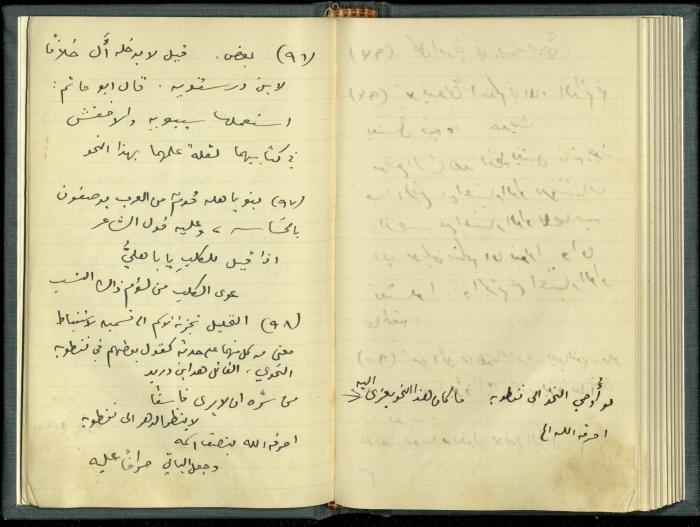 (٩٦) بعض. قيل لا يدخله أل خلافا
لابن درستويه. قال ابو حاتم:
استعملها سيبويه والاخفش
في كتابيهما لقلة علمهما بهذا النحو
(٩٧) بنو باهله قوم من العرب يوصفون
بالخساسه، وعليه قول الشاعر
اذا قيل للكلب يا باهليُّ
عوى الكلب من لؤم ذاك النسب
(٩٨) التحليل تجزئة الاسم الى قسمين لاستنباط
معنى من كل منهما على حدته كقول بعضهم في نفطويه
النحوي، القائل هو ابن دريد
من سره ان لا يرى فاسقًا
لا ينظر الدهر الى نفطويه
احرقه الله بنصف اسمه
وجعل الباقي صراخًا عليه
لو أُوحي النحو الى نفطويه ما كان هذا النحو يعزى اليه
احرقه الله الخ